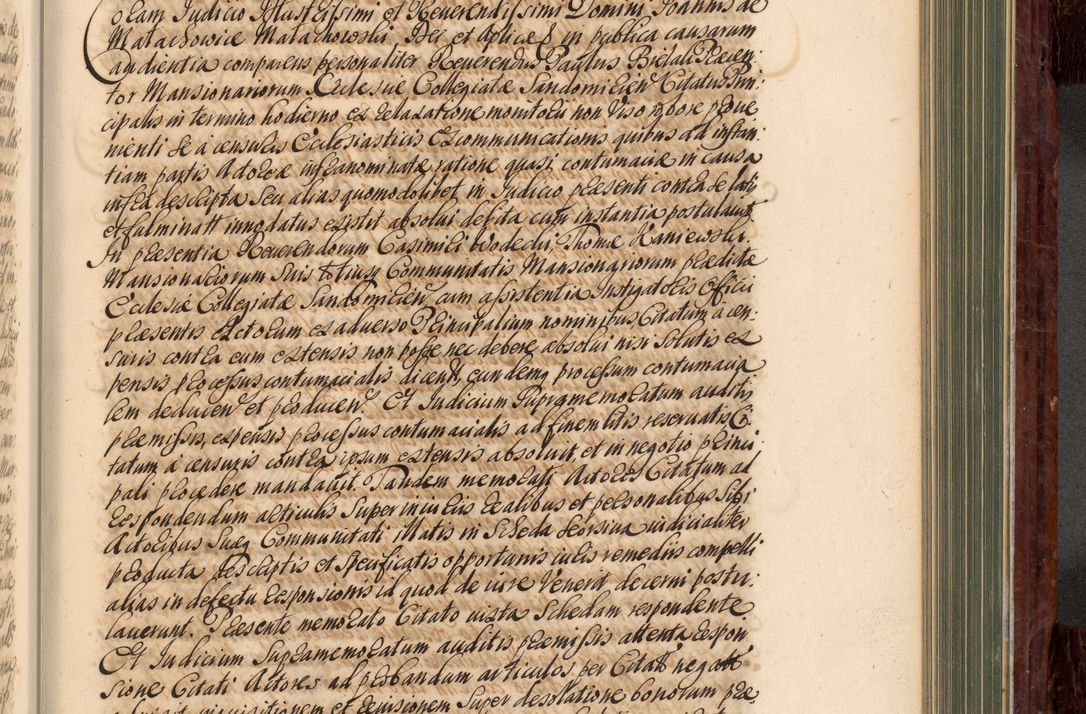 Coram Judicio Illustrissimi et Reverendissimi Domini Joannis de
Małachowice Małachowski Dei et Aplicæ S in publica causarum
audientia comparens personaliter Reverendus Paulus Bielski Præcen:
tor Mansionariorum Ecclesiæ Collegiatæ Sandomirien Citatus Prin:
cipalis in termino hodierno ex relaxatione monitorii non viso robore prove
nienti se a censuris Ecclesiasticis excommunicationis quibus ad instan:
tiam partis Actoreæ infranominatæ ratione quasi contumaciæ in causa
infra descripta seu alias quomodolibet in Judicio præsenti contra se latis
et fulminatt innodatus existit absolui debita cum instantia postulauit
In præsentia Reverendorum Casimiri Thomæ Kaniewski
Mansionariorum suis totiusq Communitatis Mansionariorum prædictæ
Ecclesiæ Collegiatæ Sandomirien cum assistentia Instigatoris Officii
præsentis Actorum ex adverso Principalium nominibus Citatum a cen:
suris contra eum extensis non posse nec debere absolui nisi solutis ex
pensis processus contumacialis dicen, eundemq processum contumacia
lem deducen et producen. Et Judicium Supramemoratum auditis
præmissis, expensis processus contumacialis ad finem litis reservatis Ci
tatum a censuris contra ipsum extensis absoluit et in negotio princi
pali procedere mandauit. Tandem memorati Actores Citatum ad
respondendum articulis super iniuriis realibus et personalibus sibi
Actoribus suæq Communitati illatis in Scheda seorsiva iudicialiter
producta descriptis et specificatis opportunis iuris remediis compelli
alias in defectu responsionis id quod de iure venerit decerni postu:
lauerunt. Præsente memorato Citato iuxta Schedam respondente
Et Judicium Supramemoratum auditis præmissis attenta respon
sione Citati Actores ad probandum articulos per Citatt negatt
inquisitionem et revisionem super desolatione bonorum præ